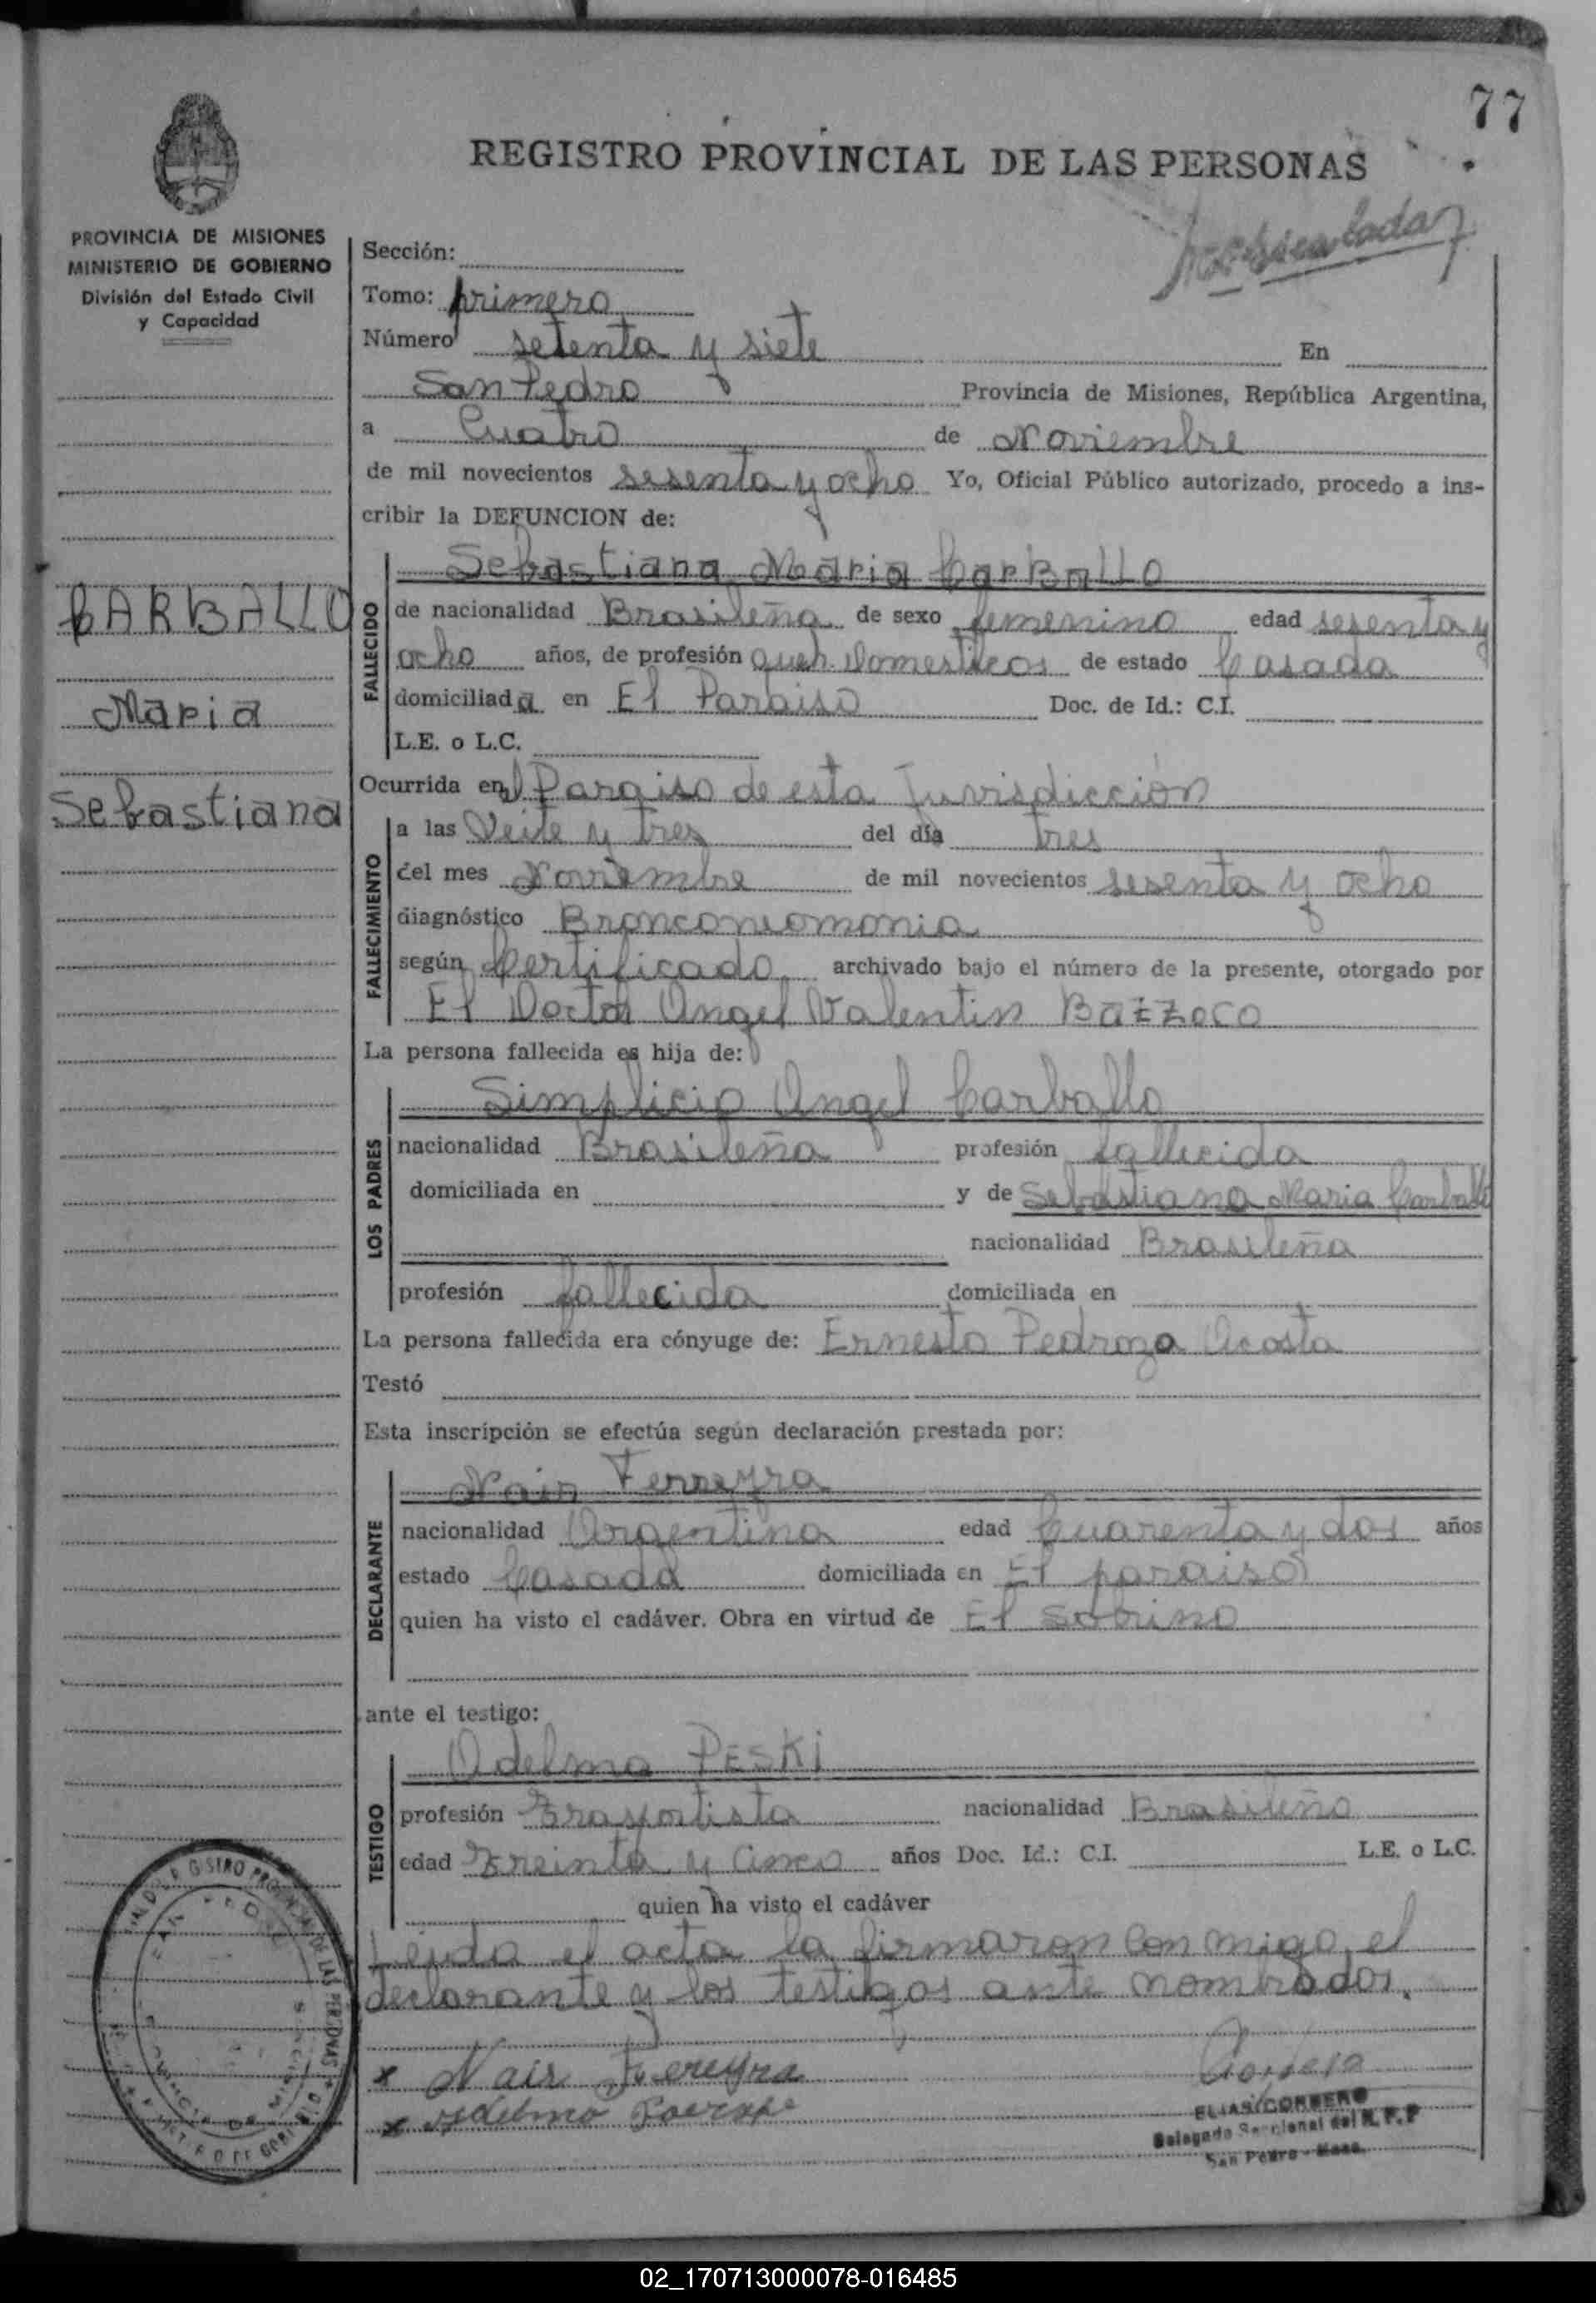 77
REGISTRO PROVINCIAL DE LAS PERSONAS
PROVINCIA DE MISIONES
MINISTERIO DE GOBIERNO
División del Estado Civil
y Capacidad
CARBALLO
Maria
Sebastiana
Sección:
Tomo: primero
Número setenta y siete En
San Pedro Provincia de Misiones, República Argentina,
a Cuatro de Noviembre
de mil novecientos sesenta y ocho Yo, Oficial Público autorizado, procedo a ins-
cribir la DEFUNCION de:
Sebastiana Maria Carballo
FALLECIDO
de nacionalidad Brasileña de sexo femenino edad sesenta y
ocho años, de profesión queh. domesticos de estado Casada
domiciliada en El Paraiso Doc. de Id.: C.I.
L.E. o L.C.
Ocurrida en El Paraiso de esta Jurisdicción
FALLECIMIENTO
a las Veite y tres del día tres
del mes Noviembre de mil novecientos sesenta y ocho
diagnóstico Bronconeomonia
según Certificado archivado bajo el número de la presente, otorgado por
El Doctor Angel Valentin
La persona fallecida es hija de:
LOS PADRES
Simplicio Angel Carballo
nacionalidad Brasileña profesión fallecida
domiciliada en y de Sebastiana Maria Carballo
nacionalidad Brasileña
profesión fallecida domiciliada en
La persona fallecida era cónyuge de: Ernesto Pedroza Acosta
Testó
Esta inscripción se efectúa según declaración prestada por:
DECLARANTE
Nair Ferreyra
nacionalidad Argentina edad Cuarenta y dos años
estado Casada domiciliada en El paraiso
quien ha visto el cadáver. Obra en virtud de El sobrino
ante el testigo:
TESTIGO
Adelmo PESKi
profesión Trasportista nacionalidad Brasileño
edad Treinta y Cinco años Doc. Id.: C.I. L.E. o L.C.
quien ha visto el cadáver
Leida el acta la firmaron con migo el
declarante y los testigos ante nombrados.
x Nair Fereyra
x
ELIAS CORBERO
Delegado Seccional del R.P.P
San Pedro - Mnes.
02_170713000078-016485